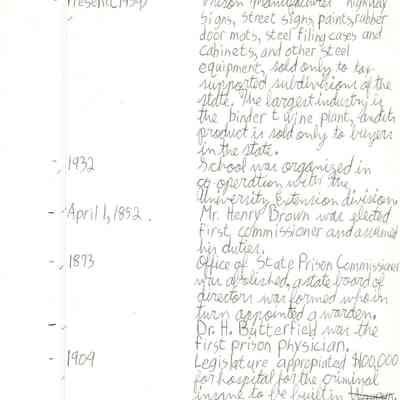 Present (1954) Prison manufactures highway
signs, street signs, paints, rubber
door mats, steel filing cases and
cabinets, and other steel
equipment, sold only to tax-
supported subdivisions of the
state. The largest industry is
the binder twine plant, and its
product is sold only to buyers
in the state.
- 1932 School was organized in
co operation with the
University Extension division.
- April 1, 1852. Mr. Henry Brown was elected
first commissioner and assumed
his duties.
- 1873 Office of State Prison Commissioner
was abolished, a state board of
directors was formed who in
turn appointed a warden.
- Dr. H. Butterfield was the
first prison physician.
- 1904 Legislature appropiated $100,000
for hospital for the criminal
insane to be built in